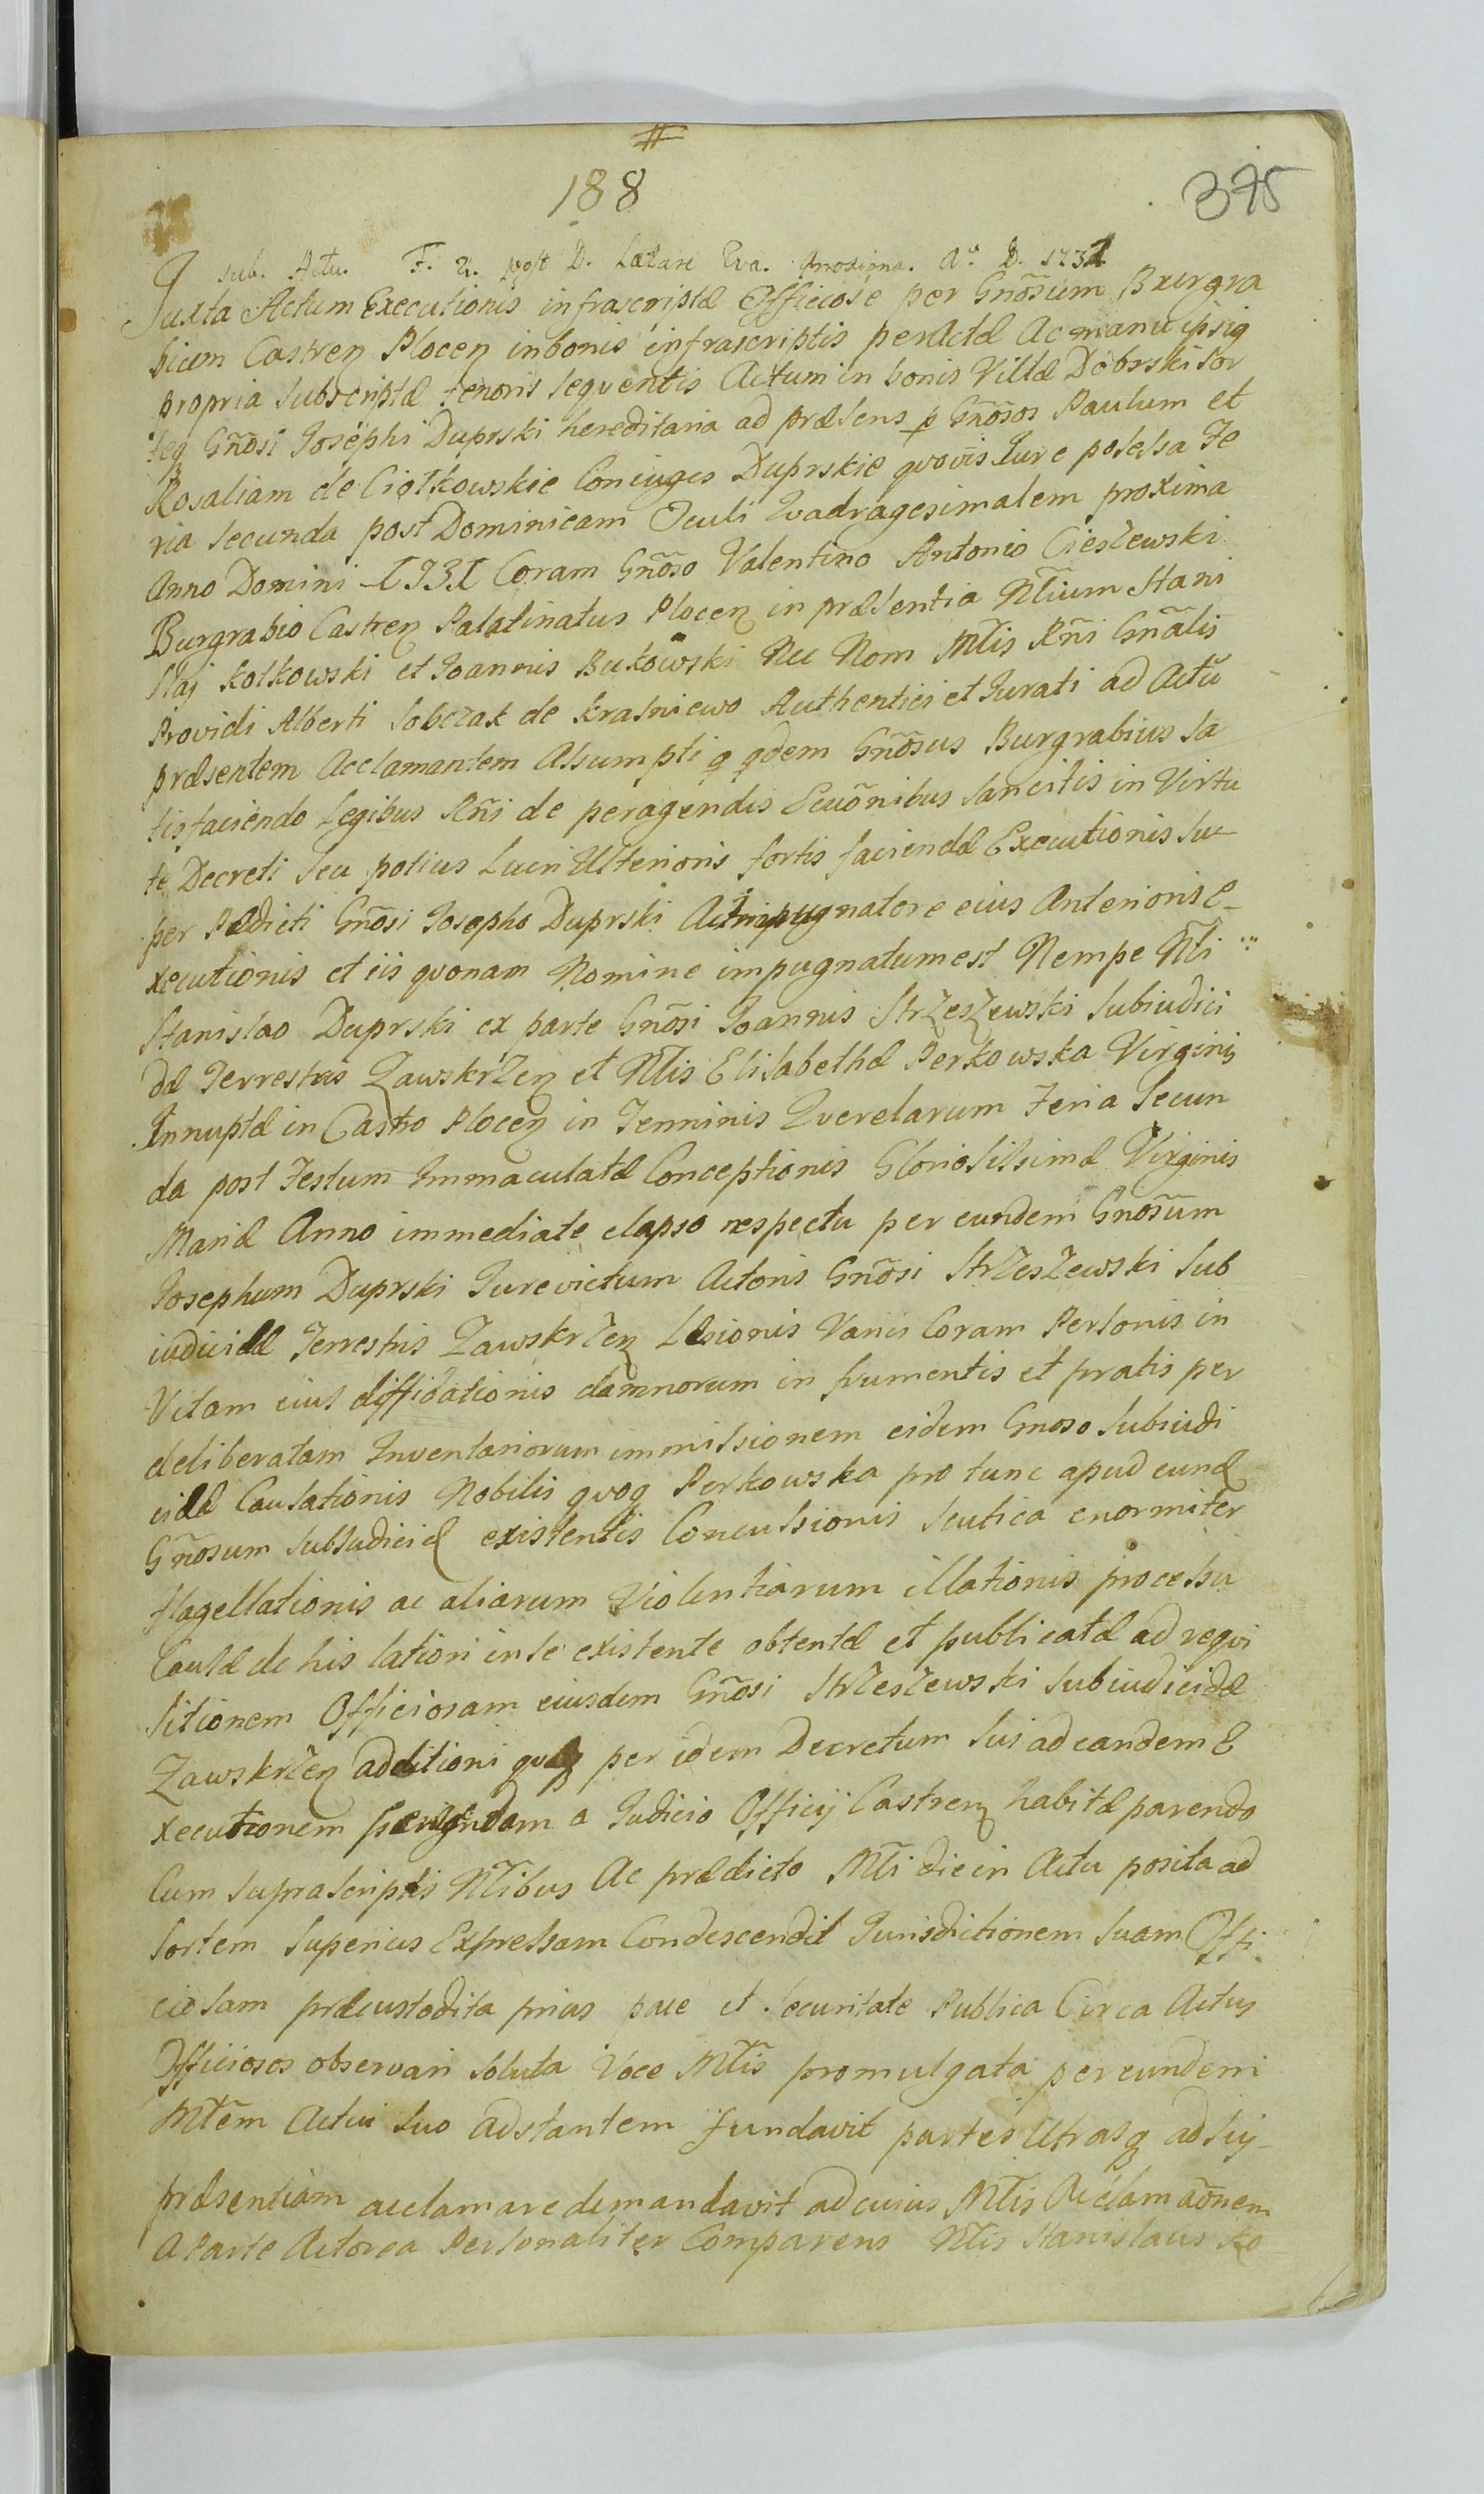 188
375
sub. Actu. F. 2. post D. Lætare Eva. proxima. Aº D. 1731
Juxta Actum Executionis infrascriptæ Officiose per Gnõsum Burgra
bium Castren Plocen in bonis infrascriptis peractæ Ac manu ipsiq
propria subscriptæ tenoris sequentis Actum in bonis Villæ Dobrski Sor
teq Gnõsi Josephi Duprski hereditaria ad præsens p Gnõsos Paulum et
Rosaliam de Ciołkowskie Coniuges Duprskie qvovis Iure possessa Fe
ria secunda post Dominicam Oculi Qvadragesimalem proxima
Anno Domini 1731 Coram Gnõso Valentino Antonio Cieszewski
Burgrabio Castren Palatinatus Plocen in præsentia Nlium Stani
slai Kołkowski et Joannis Bukowski Nec Nom Mtis Rñi Gnãlis
Providi Alberti Sobczak de Krasniewo Authentici et Jurati ad Actũ
præsentem Acclamantem Assumpti q qdem Gnõsus Burgrabius sa
tisfaciendo Legibus Rñi de peragendis Ecuõnibus Sancitis in Virtu
te Decreti seu potius Lucri Ulterioris fortis faciendæ Executionis su
per Pædicti Gnõsi Josepho Duprski Actu impugnatore eius Anterioris e_
xecutionis et iis qvonam Nomine impugnatum est Nempe Nli
Stanislao Duprski ex parte Gnõsi Joannis Strzeszewski Subiudici
dæ Terrestris Zawskrzen et Nlis Elisabethæ Perkowska Virginis
Innuptæ in Castro Plocen in Terminis Qverelarum Feria Secun
da post Festum Immaculatæ Conceptionis Gloriosissimæ Virginis
Mariæ Anno immediate elapso respectu per eundem Gnosũm
Josephum Duprski Jure victum Actoris Gnõsi Strzeszewski Sub
iudicidæ Terrestris Zawskrzen Læsionis Variis Coram Personis in
Vitam eius diffidationis damnorum in frumentis et pratis per
deliberatam Inventariorum immissionem eidem Gnoso Subiudi
cidæ Causationis Nobilis qvoq Perkowska pro tunc apud eund
Gñosum Subiudicid existentis Concussionis scutica enormiter
flagellationis ac aliarum Violentiarum illationis processu
Causæ de his latiori in se existente obtentæ et publicatæ ad reqvi
sitionem Officiosam eiusdem Gnõsi Strzeszewski Subiudicidæ
Zawskrzen additioni per idem Decretum sui ad eandem E
xecutionem peragendam a Judicio Officij Castren habitæ parendo
Cum suprascriptis Nlibus Ac prædicto Mtĩ die in Actu posita ad
sortem superius Expressam Condescendit Jurisdictionem suam Offi
ciosam præcustodita prius pace et securitate Publica Circa Actus
Officiosos observari soluta Voce Mtĩs promulgata per eundem
Mtẽm Actui suo adstantem fundavit partes Utrasq ad sui_
præsentiam acclamare demandavit ad cuius Mtĩs Acclamaõnem
A Parte Actorea Personaliter Comparens Nlis Stanislaus Ko